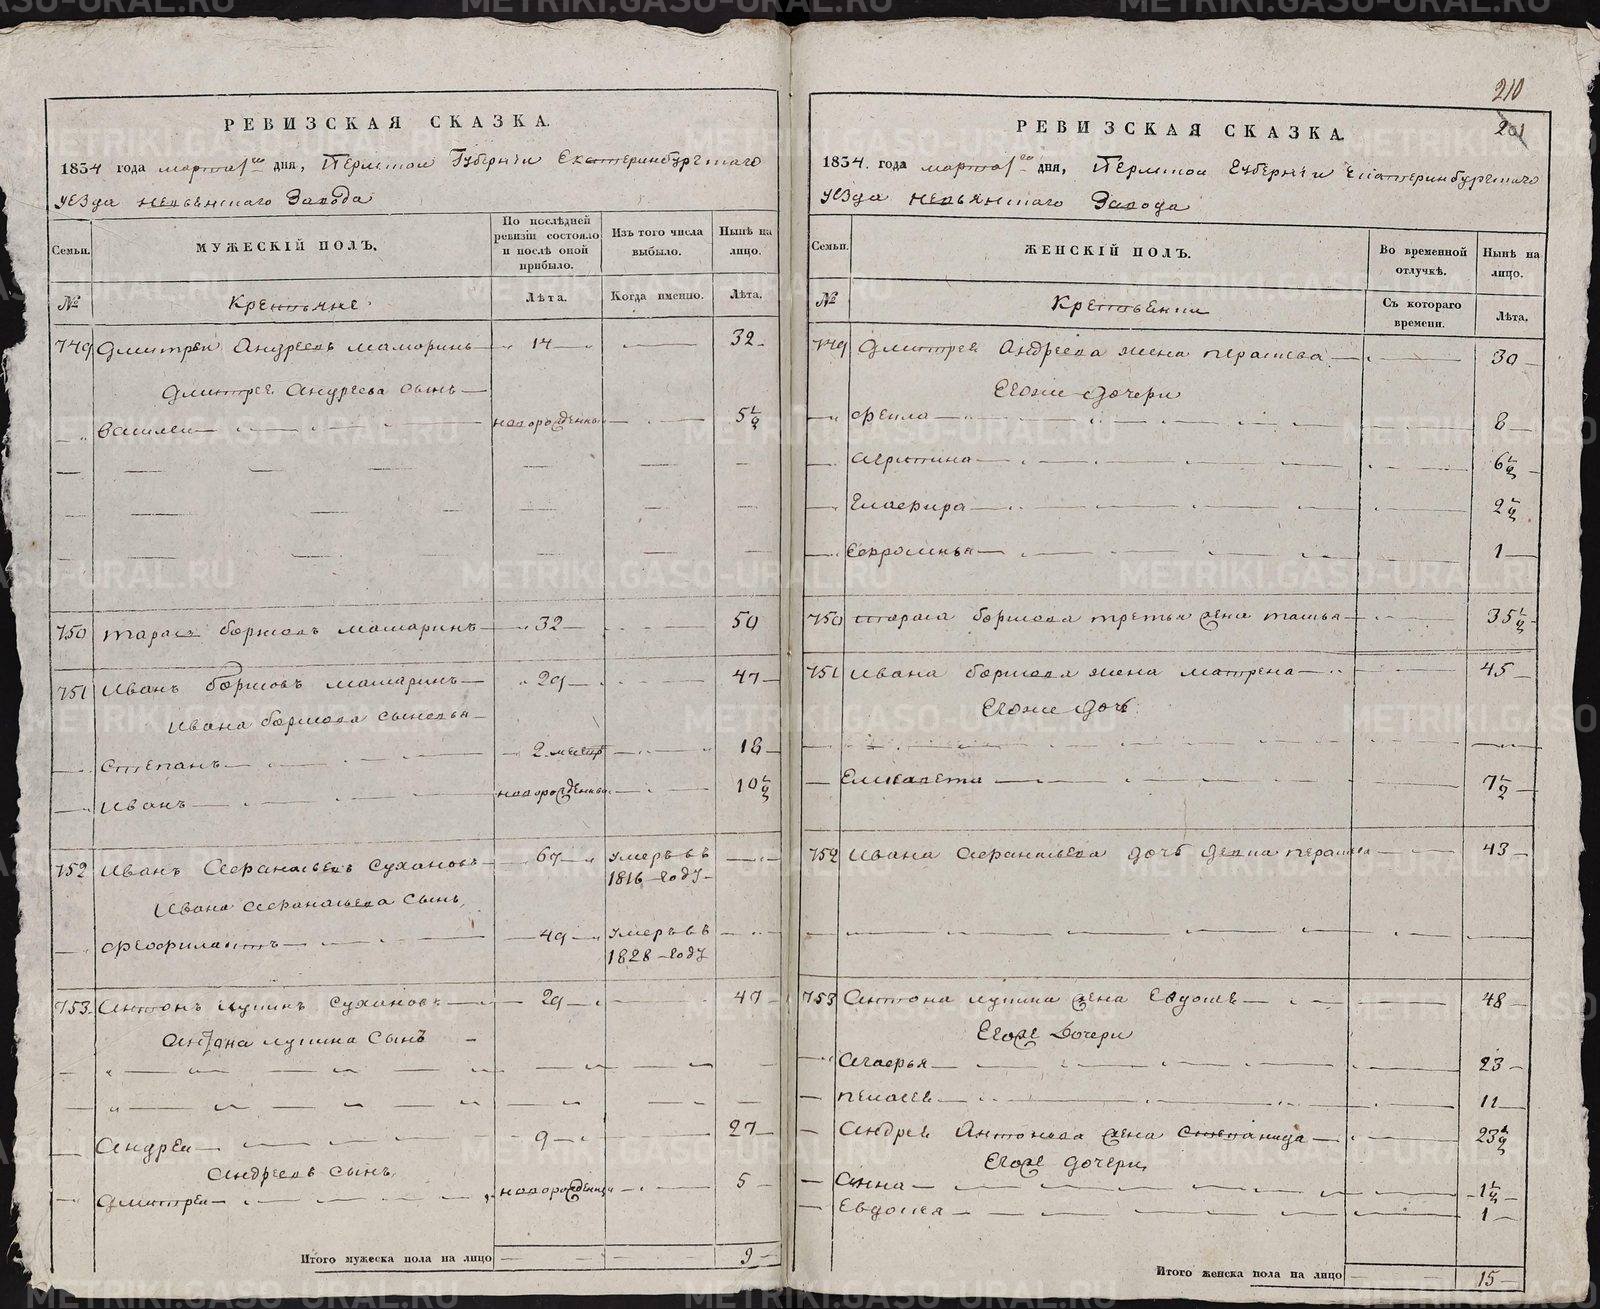 РЕВИЗСКАЯ СКАЗКА.
1834 года марта 1го дня, Пермской Губернии Екатеринбургскаго
уезда невьянскаго Завода
Семьи.
МУЖЕСКІЙ ПОЛЪ.
По послѣдней ревизіи состояло и послѣ оной прибыло.
Изъ того числа выбыло.
Нынѣ на лицо.
№
Крестьяне
Лѣта.
Когда именно.
Лѣта.
749 Дмитреи Андреевъ 14 32
Дмитрея Андреева сынъ
Василеи новорожденны 5 1/2
750 тарасъ 32 50
751 Иванъ 29 47
Ивана сыновья
степанъ 2 18
Иванъ новорожденны 10 1/2
752 Иванъ Афанасьевъ Сухановъ 67 умеръ въ
1816 году
Ивана Афанасьева сынъ
Феофилактъ 49 умеръ въ
1828 году
753 Антонъ лупинъ Сухановъ 29 47
Антона лупина Сынъ
Андреи 9 27
Андреевъ сынъ
Дмитреи новорожденны 5
Итого мужеска пола на лицо 9
210
201
РЕВИЗСКАЯ СКАЗКА.
1834 года марта 1го дня, Пермской Губернии Екатеринбургскаго
уезда невьянскаго Завода
Семьи.
ЖЕНСКІЙ ПОЛЪ.
Во временной отлучкѣ.
Нынѣ на лицо.
№
Съ котораго времени.
Лѣта.
749 Дмитрея Андреева жена 30
Егоже дочери
Фекла 8
Агрипина 6 1/2
Глафира 2 1/2
1
750 тараса третья жена 35 1/2
751 Ивана жена матрена 45
Егоже дочь
Елисавета 7 1/2
752 Ивана Афанасьева дочь 43
753 Антона лупина жена Евдокея 48
Егоже Дочери
Агафья 23
пелагея 11
Андрея Антонова жена степанида 23 1/2
Егоже дочери
Анна 1 1/2
Евдокея 1
Итого женска пола на лицо 15
METRIKI.GASO-URAL.RU